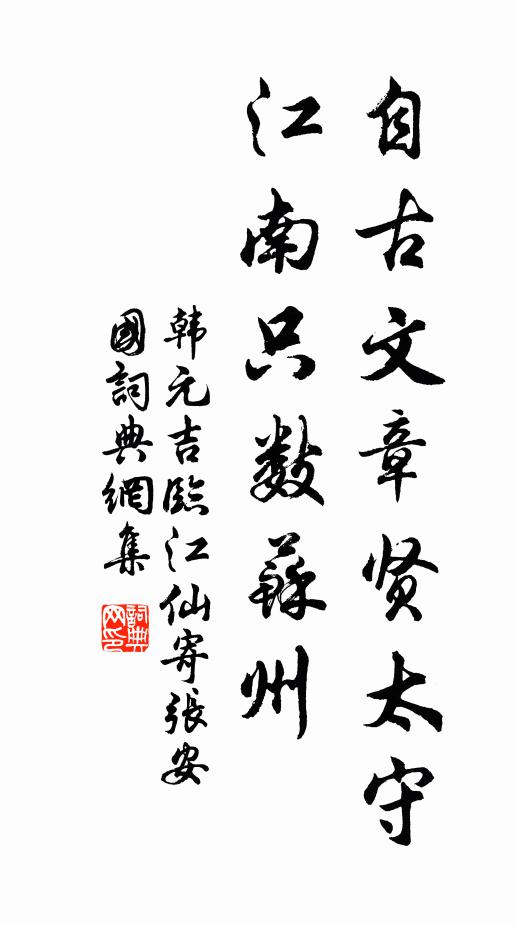 自古文章贤太守
江南只数蘇州
韩元吉臨江仙寄張安
國詞典網集
詞典网印